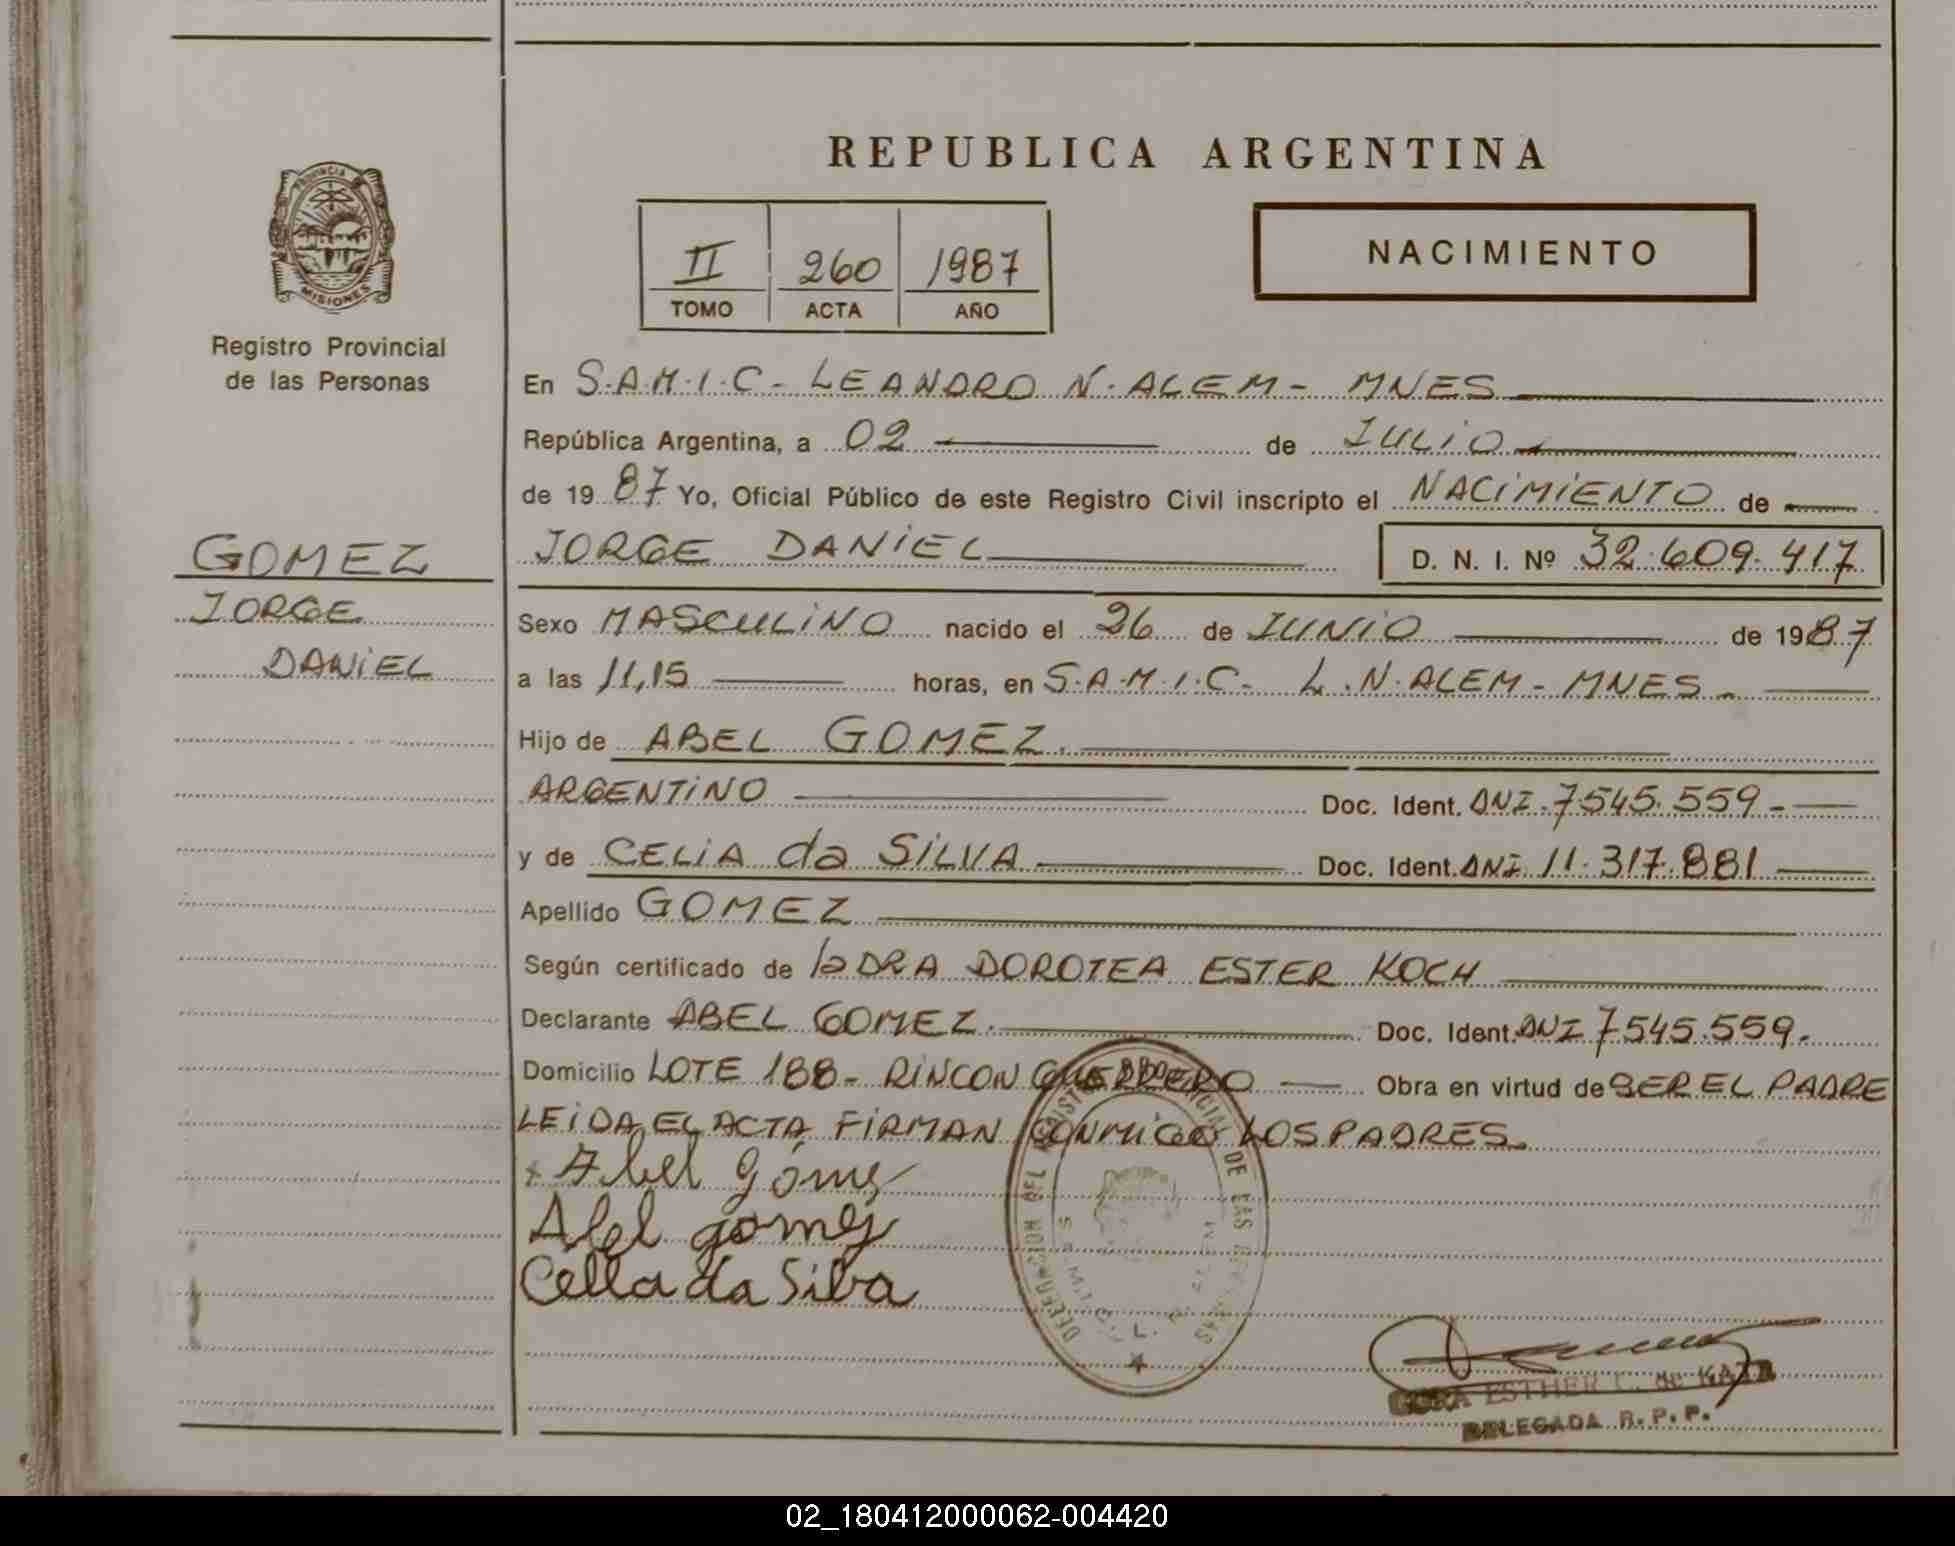 REPUBLICA ARGENTINA
PROVINCIA
MISIONES
Registro Provincial
de las Personas
II 260 1987
TOMO ACTA AÑO
NACIMIENTO
GOMEZ
JORGE
DANIEL
En S.A.M.I.C- LEANDRO N. ALEM- MNES
República Argentina, a 02 de JULIO
de 1987 Yo, Oficial Público de este Registro Civil inscripto el NACIMIENTO de
JORGE DANIEL D. N. I. Nº 32.609.417
Sexo MASCULINO nacido el 26 de JUNIO de 1987
a las 11,15 horas, en S.A.M.I.C- L.N.ALEM- MNES.
Hijo de ABEL GOMEZ.
ARGENTINO Doc. Ident. DNI. 7545.559-
y de CELIA da SILVA Doc. Ident. DNI 11.317.881
Apellido GOMEZ
Según certificado de la DRA DOROTEA ESTER KOCH
Declarante ABEL GOMEZ. Doc. Ident. DNI 7545.559.
Domicilio LOTE 188- RINCON GUERRERO Obra en virtud de SER EL PADRE
LEIDA EL ACTA FIRMAN CONMIGO LOS PADRES.
x Abel Gómez
Abel gomez
Celia da Silva
ESTHER C. de
DELEGADA R.P.P.
02_180412000062-004420